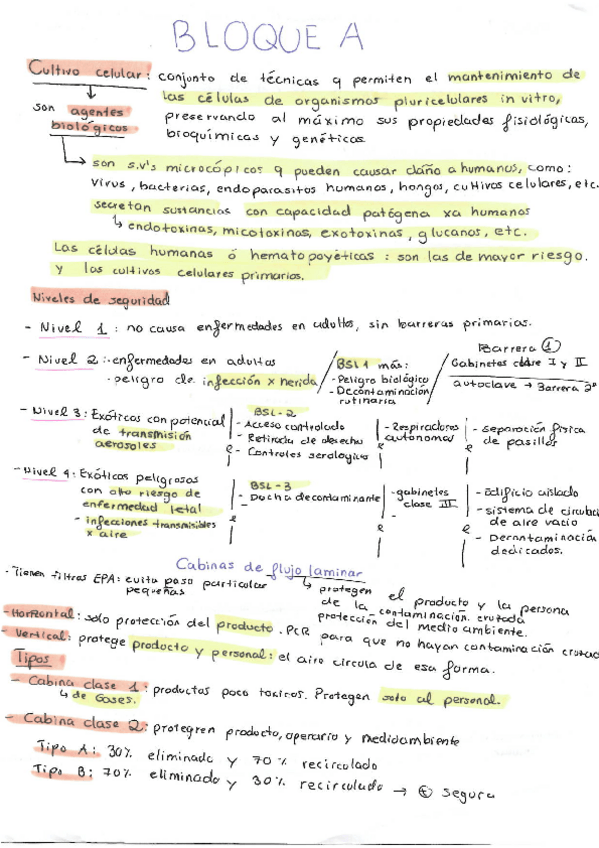 BLOQUE A
Cultivo celular: conjunto de técnicas q permiten el mantenimiento de
las células de organismos pluricelulares in vitro,
preservando al máximo sus propiedades fisiológicas,
bioquímicas y genéticas
son agentes
biológicos
son s.v's microcópicos q pueden causar daño a humanos, como:
virus, bacterias, endoparasitos humanos, hongos, cultivos celulares, etc.
secretan sustancias con capacidad patógena xa humanos
↳ endotoxinas, micotoxinas, exotoxinas, glucanos, etc.
Las células humanas ó hematopoyéticas: son las de mayor riesgo.
y los cultivos celulares primarios.
Niveles de seguridad
- Nivel 1: no causa enfermedades en adultos, sin barreras primarias.
- Nivel 2: · enfermedades en adultos
· peligro de infección x herida
BSL1 más:
- Peligro biológico
- Decontaminación
rutinaria
Barrera ①
Gabinetes clase I y II
autoclave → Barrera 2º
- Nivel 3: Exóticos con potencial
de transmisión
aerosoles
BSL-2
- Acceso controlado
- Retirada de desecho
- Controles serologico
- Respiradores
autonomos
- separación física
de pasillos
- Nivel 4: Exóticos peligrosos
con alto riesgo de
enfermedad letal
- infecciones transmisibles
x aire
BSL-3
- Ducha decontaminante
- gabinetes
clase III
- Edificio aislado
- sistema de circulac
de aire vacio
- Decontaminación
dedicados.
Cabinas de flujo laminar
- Tienen filtros EPA: evita paso particular
pequeñas
↳ protegen el producto y la persona
de la contaminación cruzada
protección del medio ambiente.
- Horizontal: solo protección del producto. PCR para que no hayan contaminación cruzada
- Vertical: protege producto y personal: el aire circula de esa forma.
Tipos
- Cabina clase 1: productos poco toxicos. Protegen solo al personal.
↳ de Gases.
- Cabina clase 2: protegren producto, operario y medioambiente
Tipo A: 30% eliminado y 70% recirculado
Tipo B: 70% eliminado y 30% recirculado → ⊕ segura